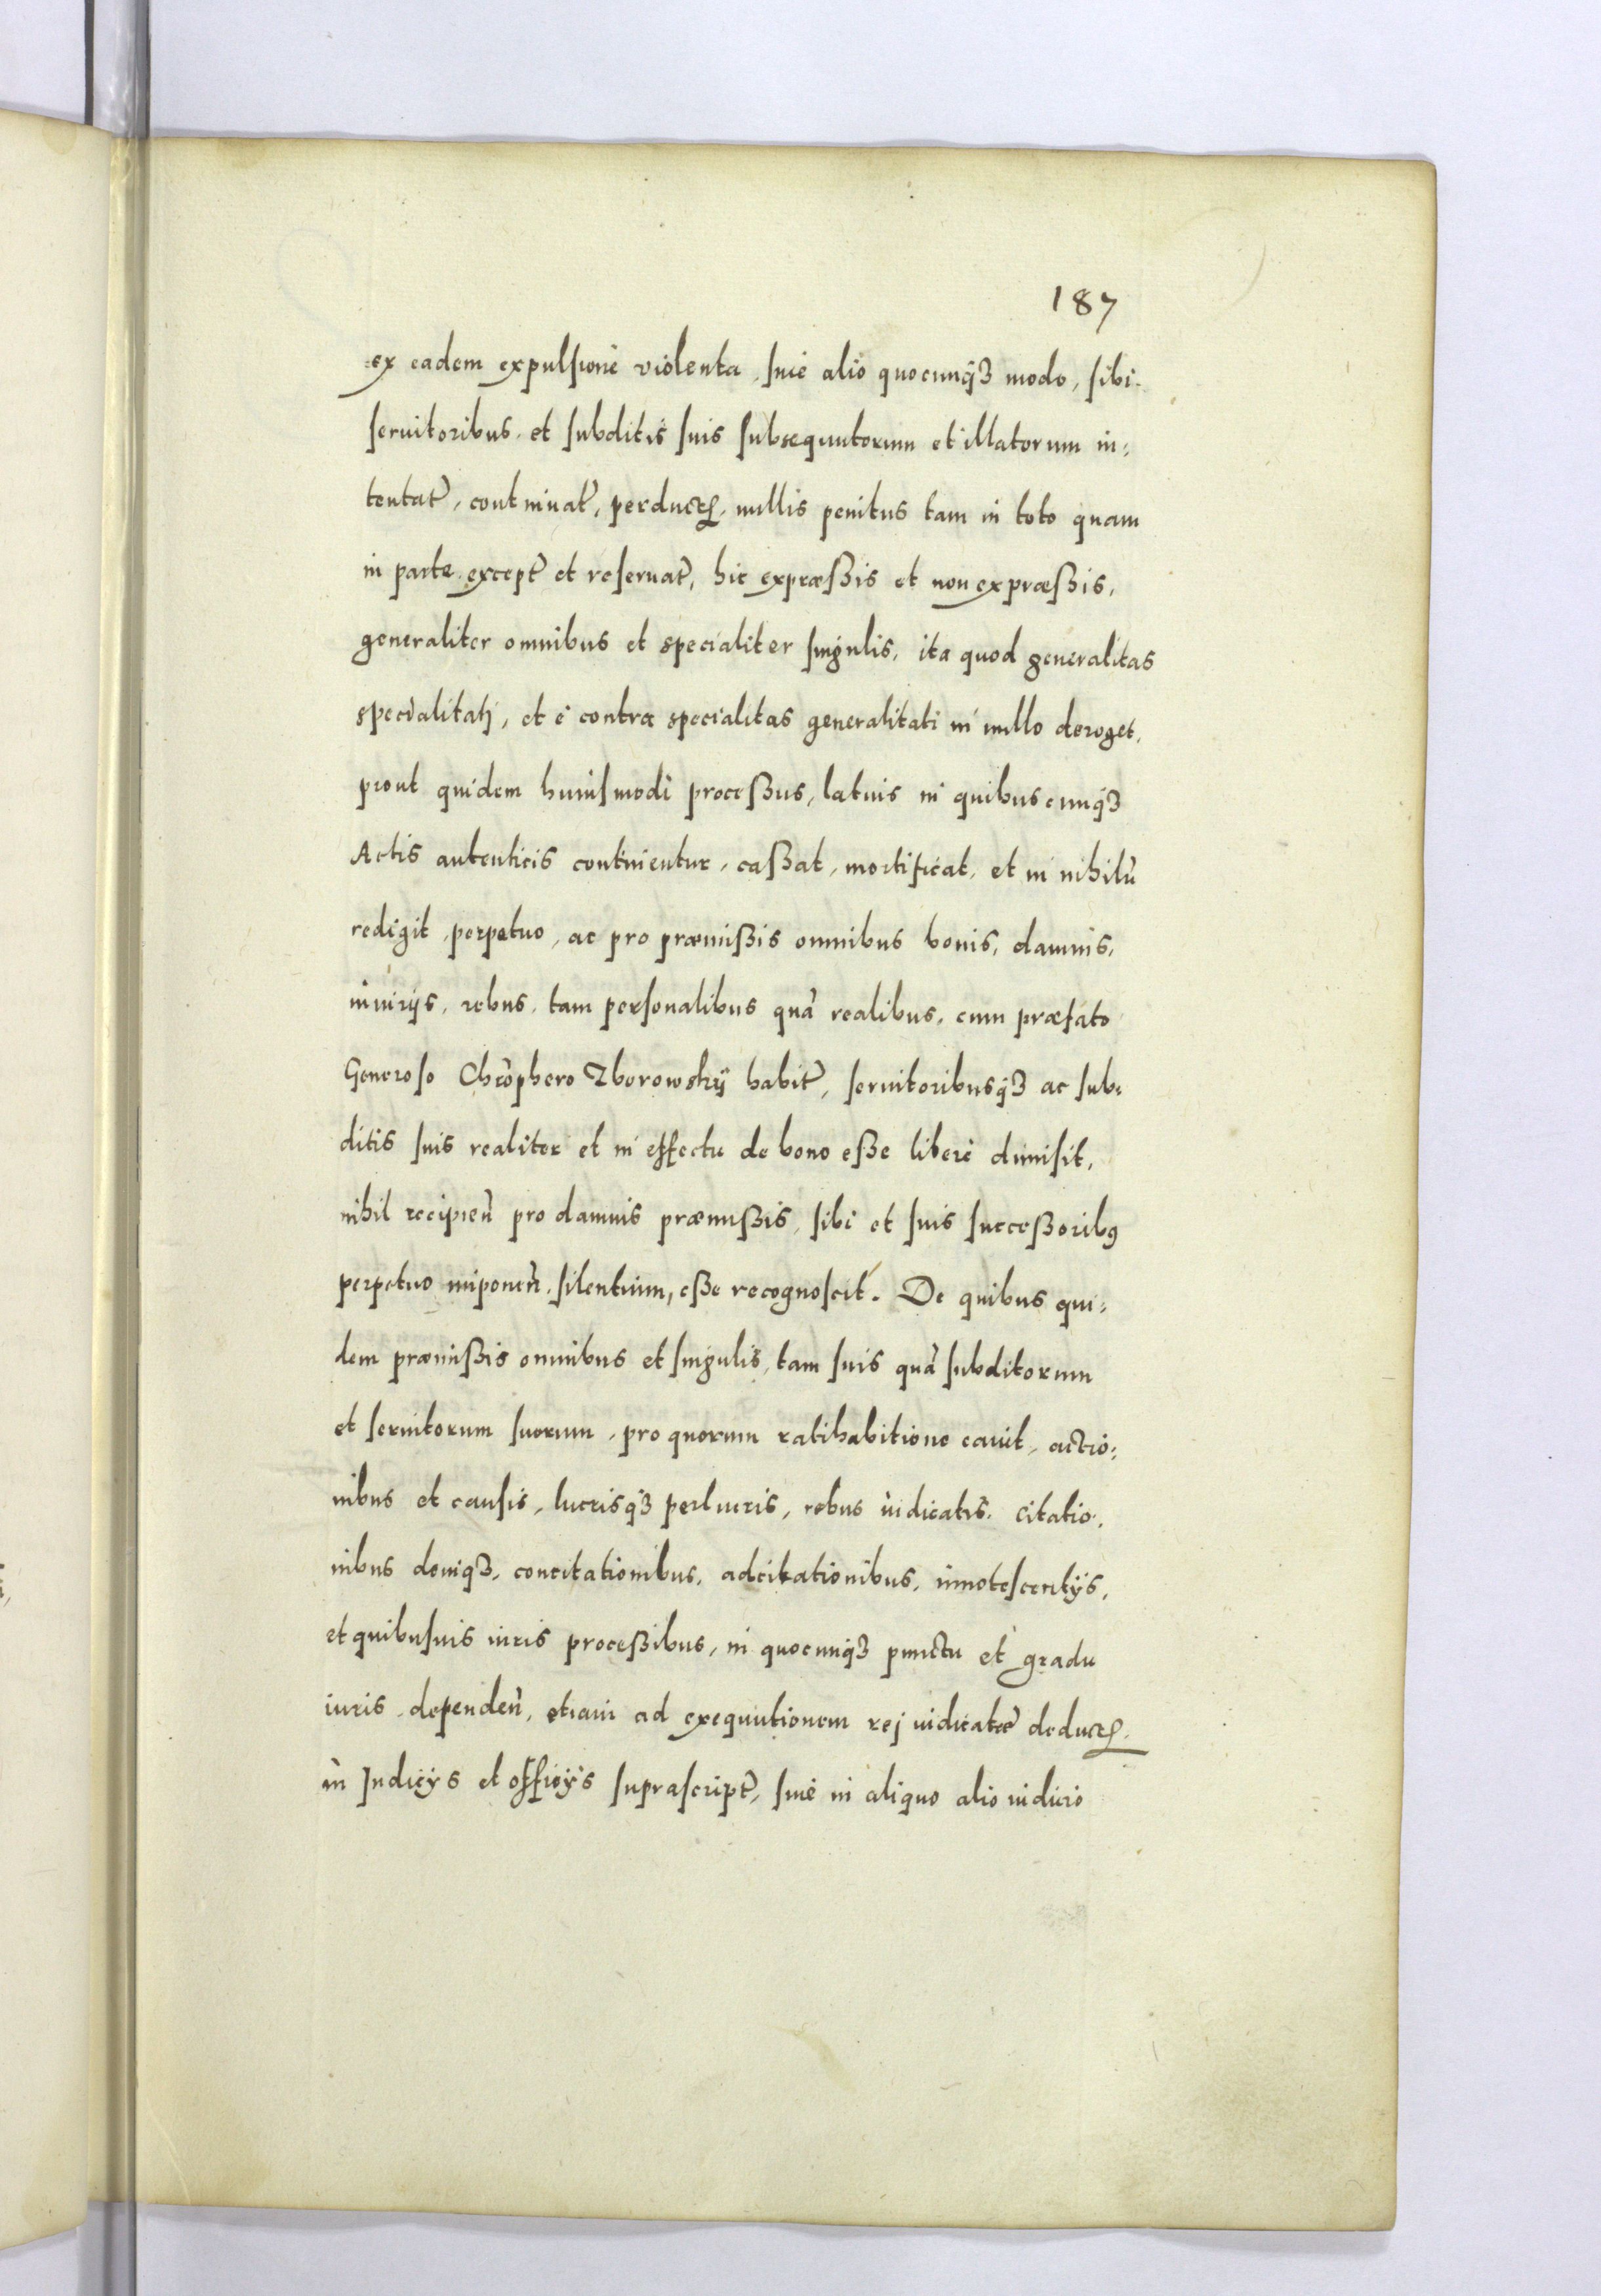 187
ex eadem expulsione violenta, siue alio quocunqȝ modo, sibi
seruitoribus et subditis suis subsequutorum et illatorum in:
tentat̃, continuat̃, perductꝭ, nullis penitus tam in toto quam
in parte except̃ et reseruat̃, hic expræssis et non expræssis,
generaliter omnibus et specialiter singulis, ita quod generalitas
specialitatj, et è contra specialitas generalitati in nullo deroget,
prout quidem huiusmodi processus, latius in quibuscunqȝ
Actis autenticis continentur, cassat, mortificat, et in nihilũ
redigit perpetuo, ac pro præmissis omnibus bonis, damnis,
iniurijs, rebus tam personalibus quã realibus, cum præfato
Generoso Chrõphero Zborowskÿ habit̃, seruitoribusqȝ ac sub:
ditis suis realiter et in effectu de bono esse liberè dimisit,
nihil recipieñ pro damnis præmissis, sibi et suis successoribꝰ
perpetuo imponeñ silentium, esse recognoscit. De quibus qui:
dem præmissis omnibus et singulis, tam suis quã subditorum
et seruitorum suorum, pro quorum ratihabitione cauit, actio:
nibus et causis, lucrisqȝ perlucris, rebus iudicatis, citatio:
nibus deniqȝ, concitationibus, adcitationibus, innotescentijs,
et quibusuis iuris processibus, in quocunqȝ punctu et gradu
iuris dependeñ, etiam ad exequutionem rej iudicatæ deductꝭ
in Judicijs et officijs suprascript̃, siue in aliquo alio iudicio